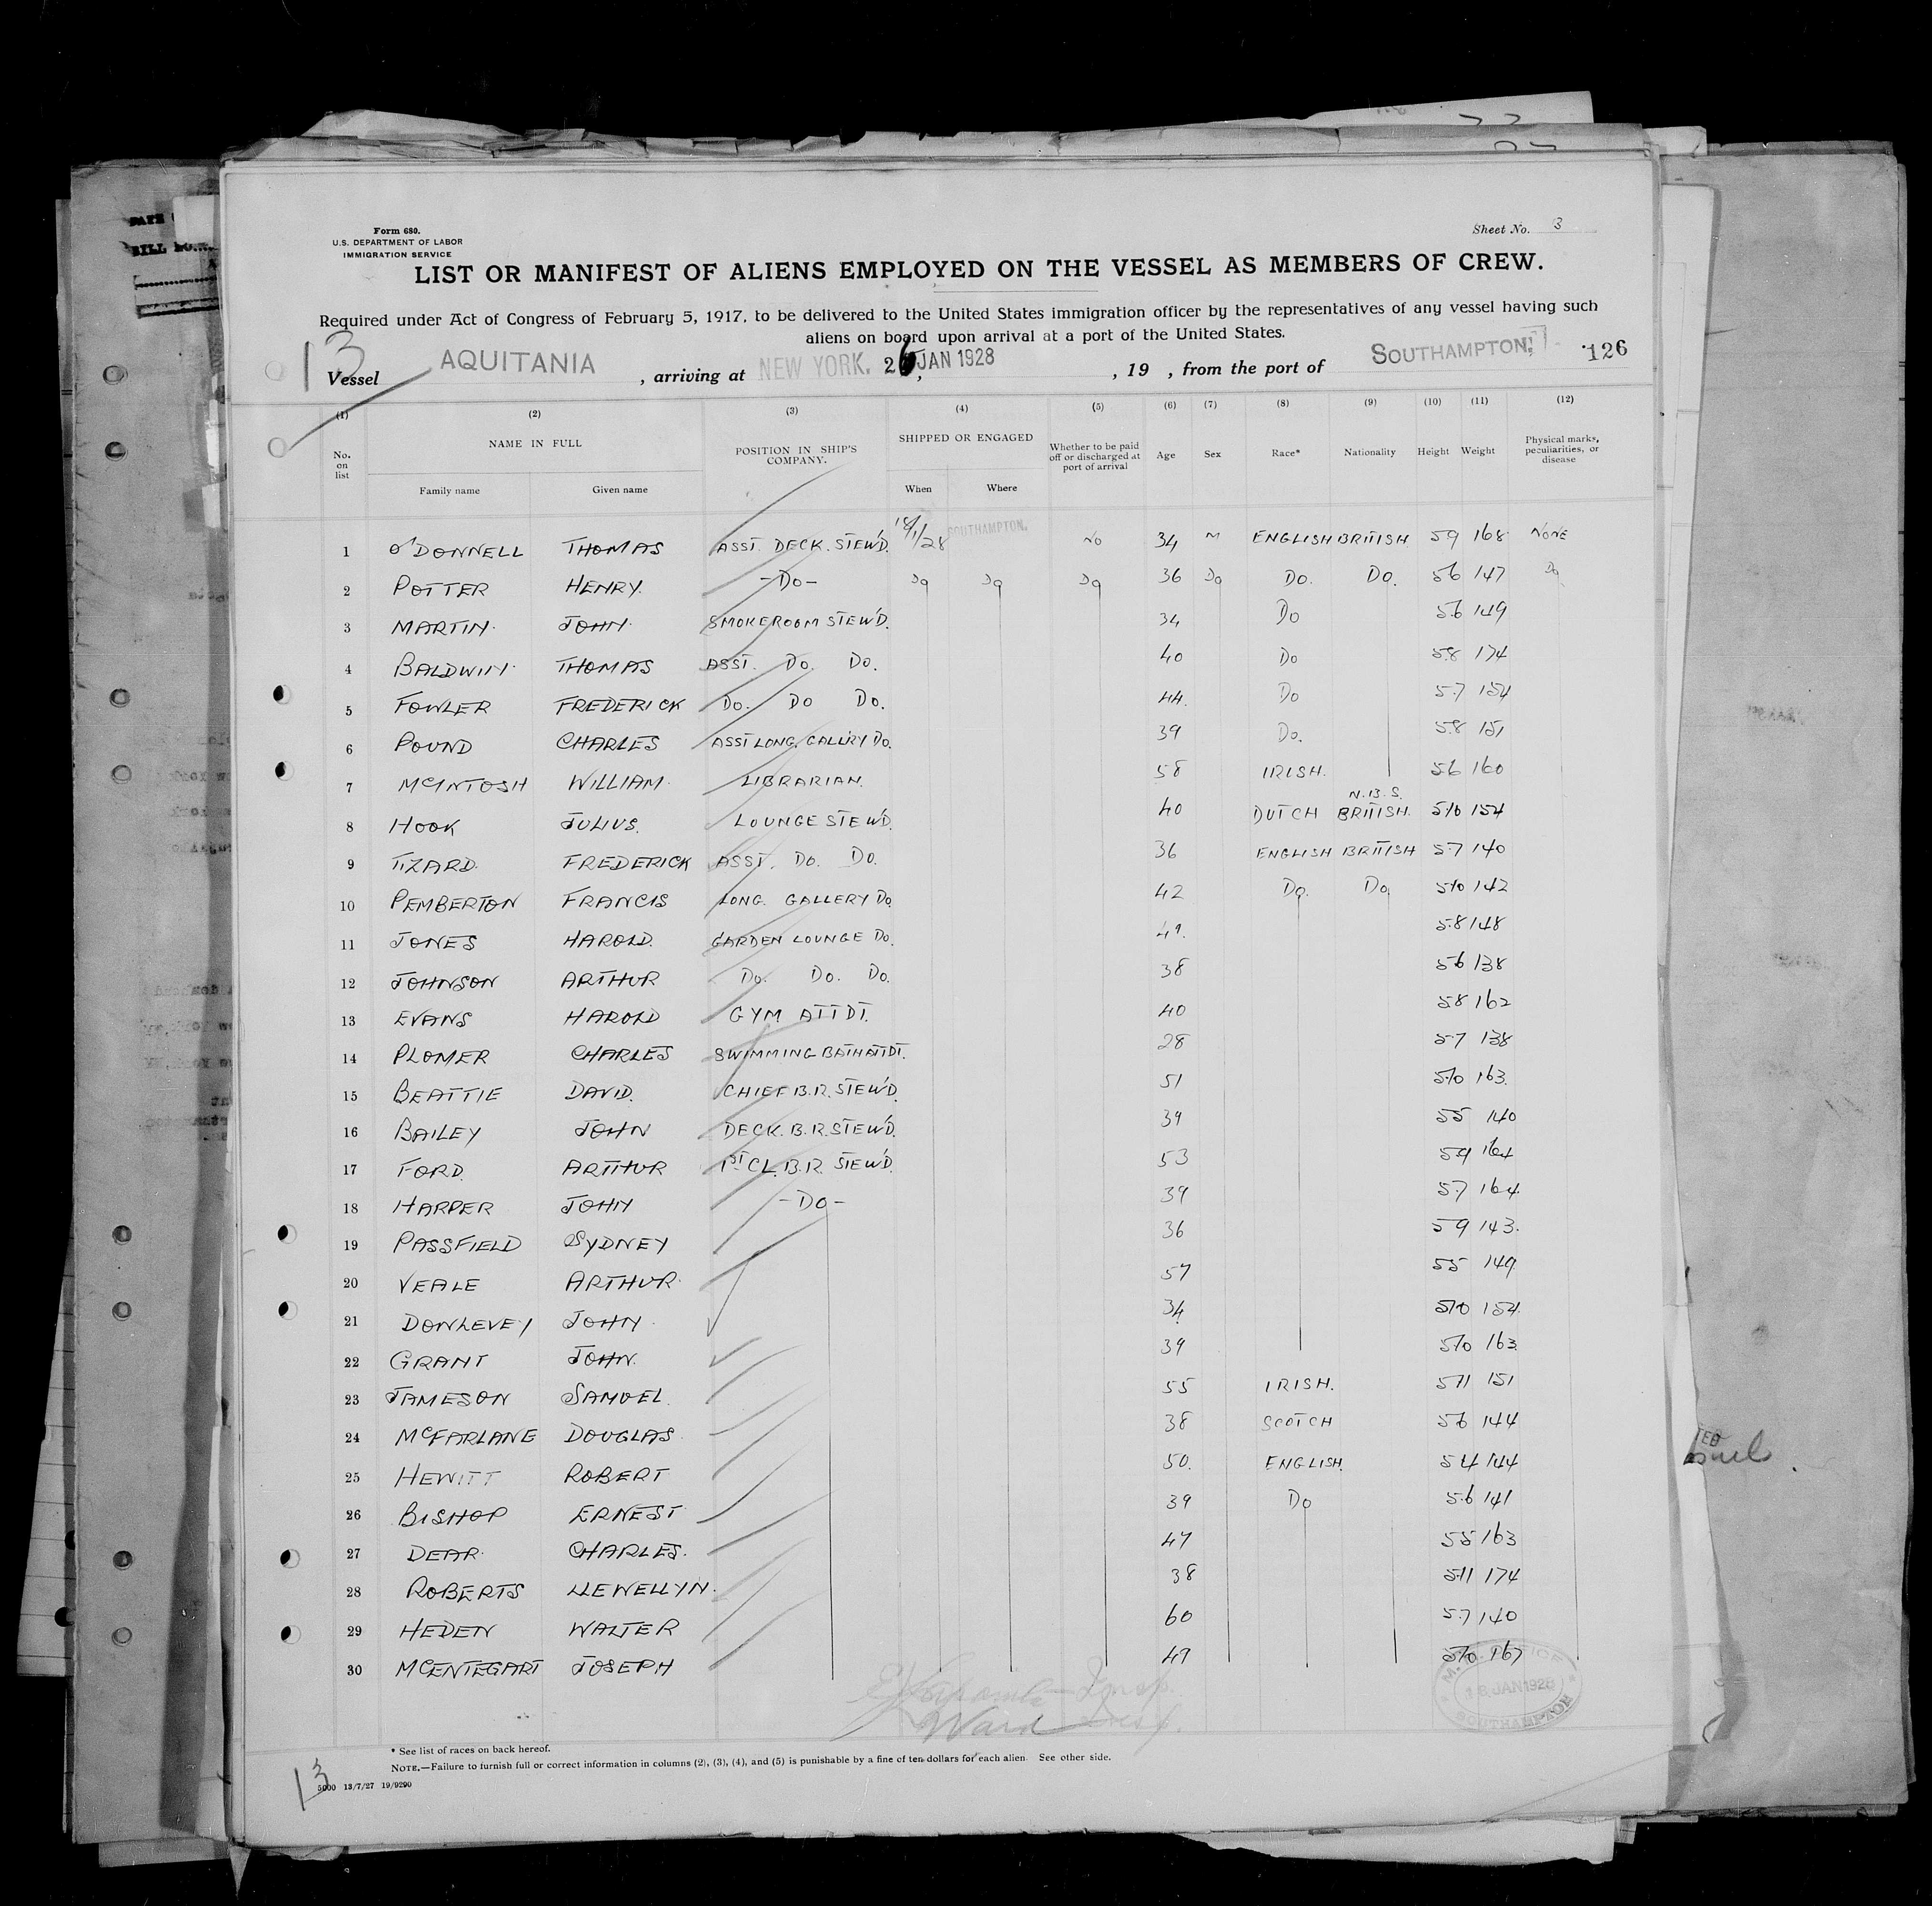 Form 680.
U.S. DEPARTMENT OF LABOR
IMMIGRATION SERVICE
Sheet No. 3
LIST OR MANIFEST OF ALIENS EMPLOYED ON THE VESSEL AS MEMBERS OF CREW.
Required under Act of Congress of February 5, 1917, to be delivered to the United States immigration officer by the representatives of any vessel having such
aliens on board upon arrival at a port of the United States.
13
Vessel AQUITANIA , arriving at NEW YORK. 26 JAN 1928 , 19 , from the port of SOUTHAMPTON. 126
(1) (2) (3) (4) (5) (6) (7) (8) (9) (10) (11) (12)
No. on list NAME IN FULL POSITION IN SHIP'S COMPANY. SHIPPED OR ENGAGED Whether to be paid off or discharged at port of arrival Age Sex Race* Nationality Height Weight Physical marks, peculiarities, or disease
Family name Given name When Where
1 O'DONNELL THOMAS ASST. DECK. STEW'D. 18/1/28 SOUTHAMPTON. NO 34 M ENGLISH BRITISH 59 168 NONE
2 POTTER HENRY. -DO- DO DO DO 36 DO DO. DO. 56 147 DO
3 MARTIN. JOHN. SMOKEROOM STEW'D. 34 DO 5.6 149
4 BALDWIN. THOMAS ASST. DO. DO. 40 DO 5.8 174
5 FOWLER FREDERICK DO. DO DO. 44. DO 5.7 154
6 POUND CHARLES ASST LONG. GALLERY DO. 39 DO. 5.8 151
7 MCINTOSH WILLIAM. LIBRARIAN. 58 IRISH. 56 160
N.B.S.
8 HOOK JULIUS. LOUNGE STEW'D. 40 DUTCH BRITISH. 5.10 154
9 TIZARD. FREDERICK ASST. DO. DO. 36 ENGLISH BRITISH 5.7 140
10 PEMBERTON FRANCIS LONG. GALLERY DO. 42 DO. DO. 5.10 142
11 JONES HAROLD. GARDEN LOUNGE DO. 5.8 148
12 JOHNSON ARTHUR DO. DO. DO. 38 56 138
13 EVANS HAROLD GYM ATTDT. 40 58 162
14 PLOMER CHARLES SWIMMING BATH ATTDT. 28 5.7 138
15 BEATTIE DAVID. CHIEF B.R. STEW'D. 51 5.10 163.
16 BAILEY JOHN DECK. B.R. STEW'D. 39 55 140
17 FORD. ARTHUR 1ST CL. B.R. STEW'D. 53 59 164
18 HARPER JOHN -DO- 39 5.7 164
19 PASSFIELD SYDNEY 36 59 143.
20 VEALE ARTHUR. 57 55 149.
21 DONLEVEY JOHN 34 5.10 154.
22 GRANT JOHN. 39 5.10 163
23 JAMESON SAMUEL. 55 IRISH. 5.11 151
24 MCFARLANE DOUGLAS. 38 SCOTCH 56 144
25 HEWITT ROBERT 50. ENGLISH. 54 144
26 BISHOP ERNEST 39 DO 5.6 141
27 DEAR. CHARLES. 47 55 163
28 ROBERTS LLEWELLYN. 38 5.11 174
29 HEDEN WALTER 60 5.7 140
30 MCENTEGART JOSEPH 49 5.10 167
Insp.
Ward Insp.
18 JAN 1928
SOUTHAMPTON
* See list of races on back hereof.
NOTE.—Failure to furnish full or correct information in columns (2), (3), (4), and (5) is punishable by a fine of ten dollars for each alien. See other side.
13
5000 13/7/27 19/9290